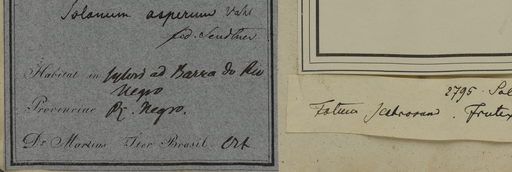 Solanum asperum Vahl
fid. Sendtner
Habitat in sylvis ad Barra do Rio
Negro
Provinciae R. Negro.
Dr Martius Iter Brasil. Oct
2795. Sol
Totum scabrosum. Frutex